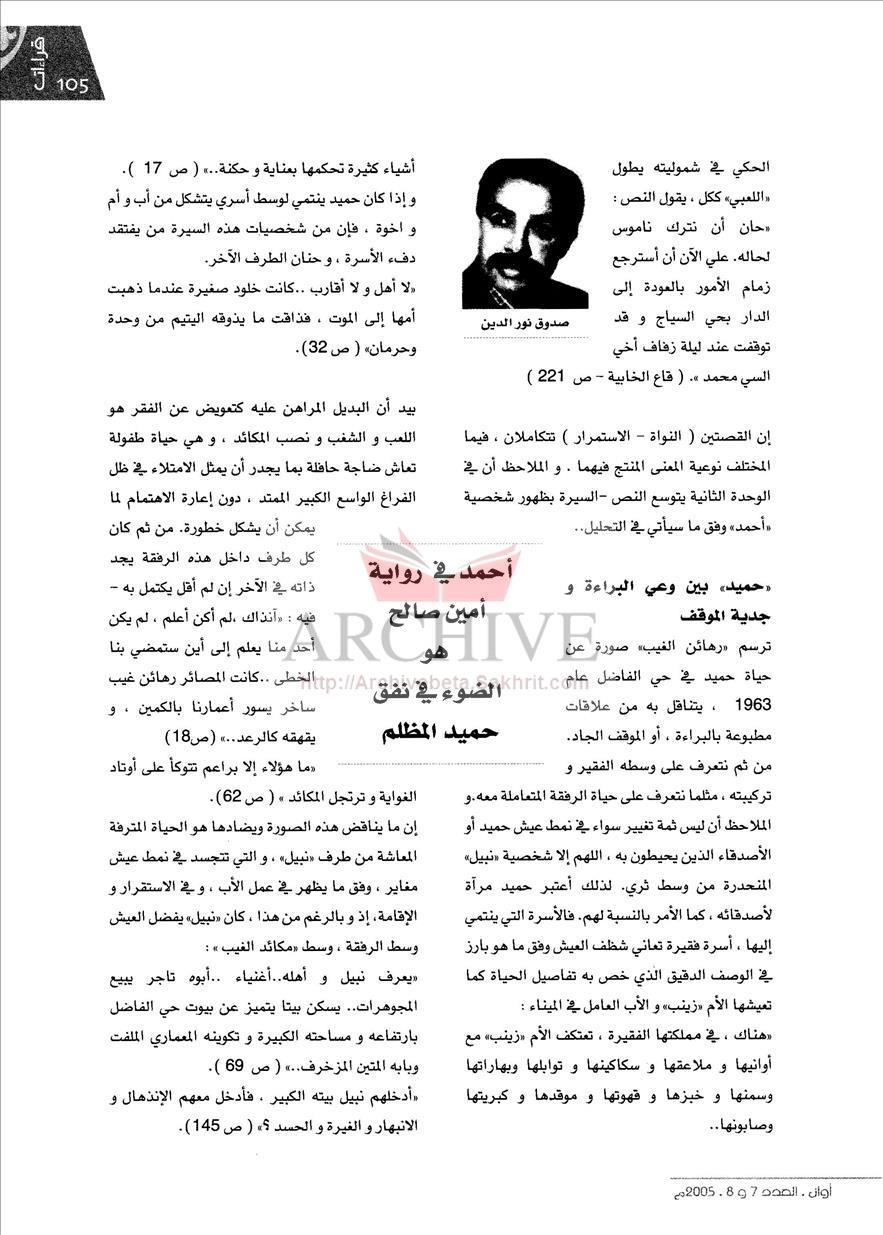 قراءات
105
الحكي في شموليته يطول
«اللعبي» ككل ، يقول النص :
«حان أن نترك ناموس
لحاله. علي الآن أن أسترجع
زمام الأمور بالعودة إلى
الدار بحي السياج و قد
توقفت عند ليلة زفاف أخي
السي محمد ». ( قاع الخابية – ص 221 )
صدوق نور الدين
إن القصتين ( النواة – الاستمرار ) تتكاملان ، فيما
المختلف نوعية المعنى المنتج فيهما . و الملاحظ أن في
الوحدة الثانية يتوسع النص –السيرة بظهور شخصية
«أحمد» وفق ما سيأتي في التحليل..
«حميد» بين وعي البراءة و
جدية الموقف
ترسم «رهائن الغيب» صورة عن
حياة حميد في حي الفاضل عام
1963 ، يتناقل به من علاقات
مطبوعة بالبراءة ، أو الموقف الجاد.
من ثم نتعرف على وسطه الفقير و
تركيبته ، مثلما نتعرف على حياة الرفقة المتعاملة معه.و
الملاحظ أن ليس ثمة تغيير سواء في نمط عيش حميد أو
الأصدقاء الذين يحيطون به ، اللهم إلا شخصية «نبيل»
المنحدرة من وسط ثري. لذلك أعتبر حميد مرآة
لأصدقائه ، كما الأمر بالنسبة لهم. فالأسرة التي ينتمي
إليها ، أسرة فقيرة تعاني شظف العيش وفق ما هو بارز
في الوصف الدقيق الذي خص به تفاصيل الحياة كما
تعيشها الأم «زينب» و الأب العامل في الميناء :
«هناك ، في مملكتها الفقيرة ، تعتكف الأم «زينب» مع
أوانيها و ملاعقها و سكاكينها و توابلها وبهاراتها
وسمنها و خبزها و قهوتها و موقدها و كبريتها
وصابونها..
أشياء كثيرة تحكمها بعناية و حكنة..» ( ص 17 ).
و إذا كان حميد ينتمي لوسط أسري يتشكل من أب و أم
و اخوة ، فإن من شخصيات هذه السيرة من يفتقد
دفء الأسرة ، و حنان الطرف الآخر.
«لا أهل و لا أقارب ..كانت خلود صغيرة عندما ذهبت
أمها إلى الموت ، فذاقت ما يذوقه اليتيم من وحدة
وحرمان» ( ص 32).
بيد أن البديل المراهن عليه كتعويض عن الفقر هو
اللعب و الشغب و نصب المكائد ، و هي حياة طفولة
تعاش ضاجة حافلة بما يجدر أن يمثل الامتلاء في ظل
الفراغ الواسع الكبير الممتد ، دون إعارة الاهتمام لما
يمكن أن يشكل خطورة. من ثم كان
كل طرف داخل هذه الرفقة يجد
ذاته في الآخر إن لم أقل يكتمل به –
فيه : «آنذاك ،لم أكن أعلم ، لم يكن
أحد منا يعلم إلى أين ستمضي بنا
الخطى ..كانت المصائر رهائن غيب
ساخر يسور أعمارنا بالكمين ، و
يقهقه كالرعد..» (ص18)
«ما هؤلاء إلا براعم تتوكأ على أوتاد
الغواية و ترتجل المكائد » ( ص 62).
إن ما يناقض هذه الصورة ويضادها هو الحياة المترفة
المعاشة من طرف «نبيل» ، و التي تتجسد في نمط عيش
مغاير ، وفق ما يظهر في عمل الأب ، و في الاستقرار و
الإقامة، إذ و بالرغم من هذا ، كان «نبيل» يفضل العيش
وسط الرفقة ، وسط «مكائد الغيب » :
«يعرف نبيل و أهله..أغنياء ..أبوه تاجر يبيع
المجوهرات.. يسكن بيتا يتميز عن بيوت حي الفاضل
بارتفاعه و مساحته الكبيرة و تكوينه المعماري الملفت
وبابه المتين المزخرف..» ( ص 69 ).
«أدخلهم نبيل بيته الكبير ، فأدخل معهم الإنذهال و
الانبهار و الغيرة و الحسد ؟» ( ص 145).
أحمد في رواية
أمين صالح
هو
الضوء في نفق
حميد المظلم
ARCHIVE
http://Archivebeta.Sakhrit.com
أوان . العدد 7 و 8 . 2005م